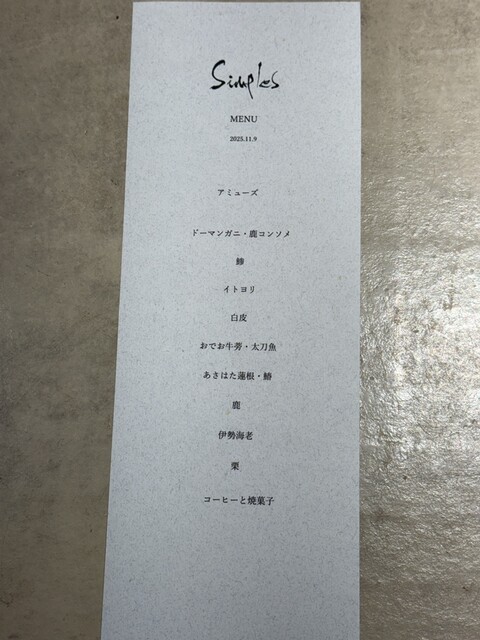 Simples
MENU
2025.11.9
アミューズ
ドーマンガニ・鹿コンソメ
鯵
イトヨリ
白皮
おでお牛蒡・太刀魚
あさはた蓮根・鰆
鹿
伊勢海老
栗
コーヒーと焼菓子